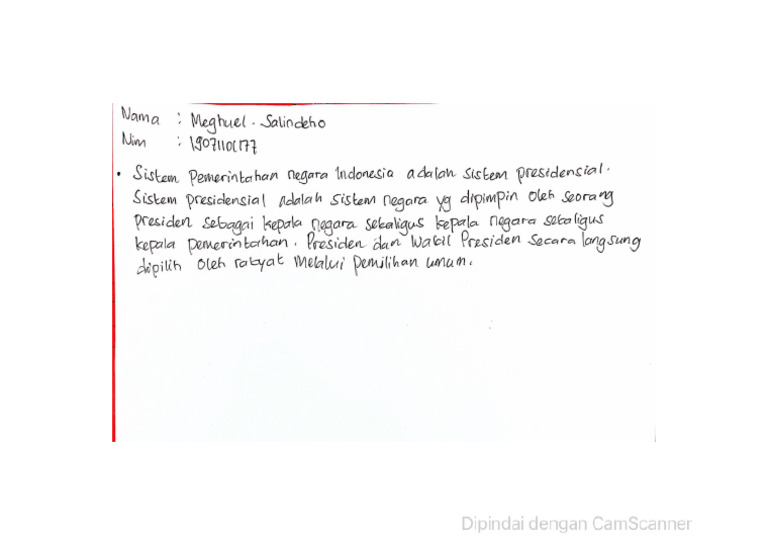 Nama : Meghuel. Salindeho
Nim : 19071101177
• Sistem Pemerintahan negara Indonesia adalah sistem presidensial.
Sistem presidensial adalah sistem negara yg dipimpin oleh seorang
presiden sebagai kepala negara sekaligus kepala negara sekaligus
kepala pemerintahan. Presiden dan Wakil Presiden secara langsung
dipilih oleh rakyat melalui pemilihan umum.
Dipindai dengan CamScanner